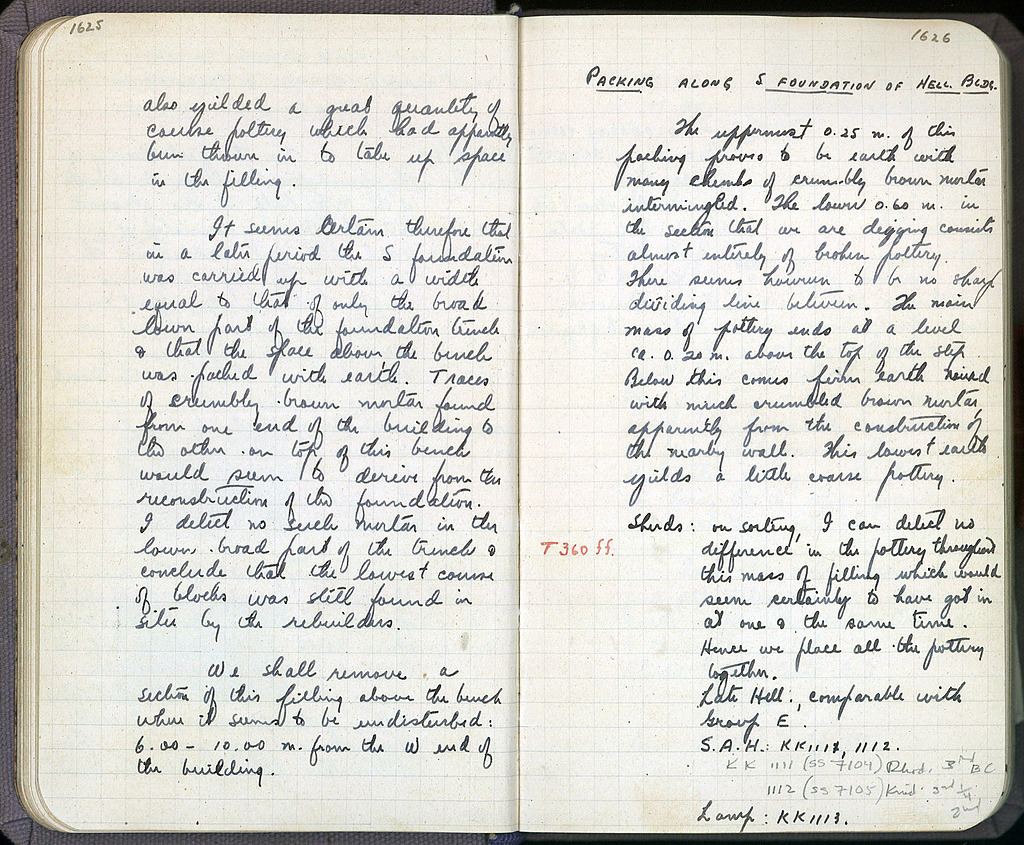 1625
also yielded a great quantity of
coarse pottery which had apparently
been thrown in to take up space
in the filling.
It seems certain therefore that
in a later period the S foundation
was carried up with a width
equal to that of only the broad
lower part of the foundation trench
& that the space above the bench
was packed with earth. Traces
of crumbly brown mortar found
from one end of the building to
the other on top of this bench
would seem to derive from the
reconstruction of the foundation.
I detect no such mortar in the
lower broad part of the trench &
conclude that the lowest course
of blocks was still found in
situ by the rebuilders.
We shall remove a
section of this filling above the bench
where it seems to be undisturbed:
6.00 - 10.00 m. from the W end of
the building.
1626
PACKING ALONG S FOUNDATION OF HELL. BLDG.
The uppermost 0.25 m. of this
packing proves to be earth with
many chunks of crumbly brown mortar
intermingled. The lower 0.60 m. in
the section that we are digging consists
almost entirely of broken pottery.
There seems however to be no sharp
dividing line between. The main
mass of pottery ends at a level
ca. 0.20 m. above the top of the step.
Below this comes firm earth mixed
with much crumbled brown mortar,
apparently from the construction of
the nearby wall. This lowest earth
yields a little coarse pottery.
Sherds: on sorting, I can detect no
T 360 ff.
difference in the pottery throughout
this mass of filling which would
seem certainly to have got in
at one & the same time.
Hence we place all the pottery
together.
Late Hell., comparable with
Group E.
S.A.H.: KK1111, 1112.
KK 1111 (SS 7104) Rhod. 3rd BC
1112 (SS 7105) Knid. 3rd 1/4
2nd
Lamp: KK1113.